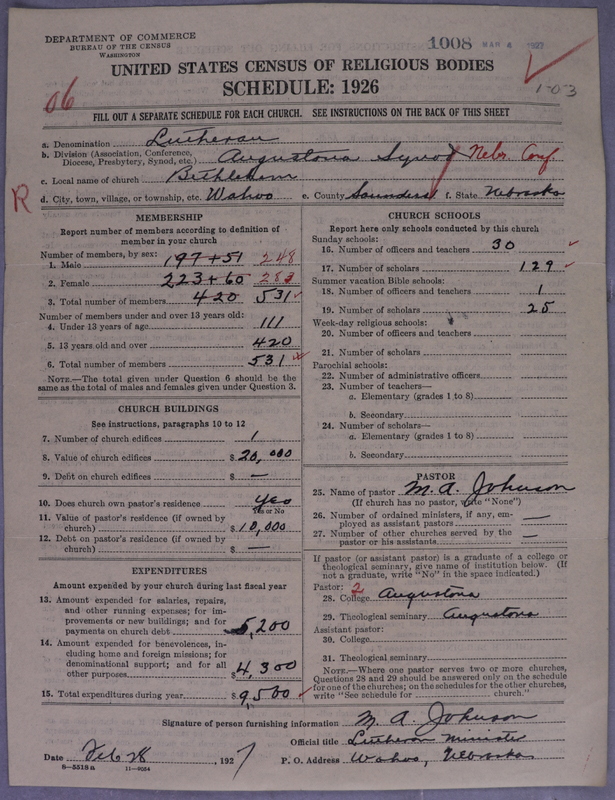 DEPARTMENT OF COMMERCE
BUREAU OF THE CENSUS
WASHINGTON
1008 MAR 4 1927
UNITED STATES CENSUS OF RELIGIOUS BODIES
SCHEDULE: 1926
1-0-3
06
FILL OUT A SEPARATE SCHEDULE FOR EACH CHURCH. SEE INSTRUCTIONS ON THE BACK OF THIS SHEET
a. Denomination Lutheran
b. Division (Association, Conference, Diocese, Presbytery, Synod, etc.) Augustana Synod Nebr. Conf.
c. Local name of church Bethlehem
R
d. City, town, village, or township, etc. Wahoo e. County Saunders f. State Nebraska
MEMBERSHIP
Report number of members according to definition of member in your church
Number of members, by sex:
1. Male 197+51 248
2. Female 223+60 283
3. Total number of members 420 531
Number of members under and over 13 years old:
4. Under 13 years of age 111
5. 13 years old and over 420
6. Total number of members 531
NOTE.—The total given under Question 6 should be the same as the total of males and females given under Question 3.
CHURCH BUILDINGS
See instructions, paragraphs 10 to 12
7. Number of church edifices 1
8. Value of church edifices $ 20,000
9. Debt on church edifices $ —
10. Does church own pastor's residence Yes
Yes or No
11. Value of pastor's residence (if owned by church) $ 10,000
12. Debt on pastor's residence (if owned by church) $ —
EXPENDITURES
Amount expended by your church during last fiscal year
13. Amount expended for salaries, repairs, and other running expenses; for improvements or new buildings; and for payments on church debt 5,200
14. Amount expended for benevolences, including home and foreign missions; for denominational support; and for all other purposes $ 4,300
15. Total expenditures during year $ 9,500
CHURCH SCHOOLS
Report here only schools conducted by this church
Sunday schools:
16. Number of officers and teachers 30
17. Number of scholars 129
Summer vacation Bible schools:
18. Number of officers and teachers 1
19. Number of scholars 25
Week-day religious schools:
20. Number of officers and teachers
21. Number of scholars
Parochial schools:
22. Number of administrative officers
23. Number of teachers—
a. Elementary (grades 1 to 8)
b. Secondary
24. Number of scholars—
a. Elementary (grades 1 to 8)
b. Secondary
PASTOR
25. Name of pastor M. A. Johnson
(If church has no pastor, write "None")
26. Number of ordained ministers, if any, employed as assistant pastors —
27. Number of other churches served by the pastor or his assistants —
If pastor (or assistant pastor) is a graduate of a college or theological seminary, give name of institution below. (If not a graduate, write "No" in the space indicated.)
Pastor: 2
28. College Augustana
29. Theological seminary Augustana
Assistant pastor:
30. College
31. Theological seminary
NOTE.—Where one pastor serves two or more churches, Questions 28 and 29 should be answered only on the schedule for one of the churches; on the schedules for the other churches, write "See schedule for church."
Signature of person furnishing information M. A. Johnson
Official title Lutheran Minister
Date Feb 28, 1927 P. O. Address Wahoo, Nebraska
8—5518a 11—9054